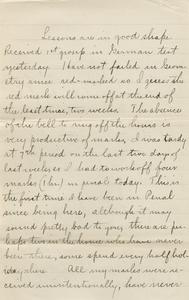 Lessons are in good shape.
Received 1st group in German test
yesterday. Have not failed in Geom-
etry since red-marked so I guess the
red mark will come off at the end of
the least time, two weeks. The absence
of the bell to ring off the hours is
very productive of marks, I was tardy
at 7th period on the last two day of
last week so I had to work off four
marks (1 hr) in penal today. This is
the first time I have been in Penal
since being here, although it may
sound pretty bad to you, there are per-
haps two in the home who have never
been there, some spend every half hol-
iday there. All my marks were re-
ceived unintentionally, have never